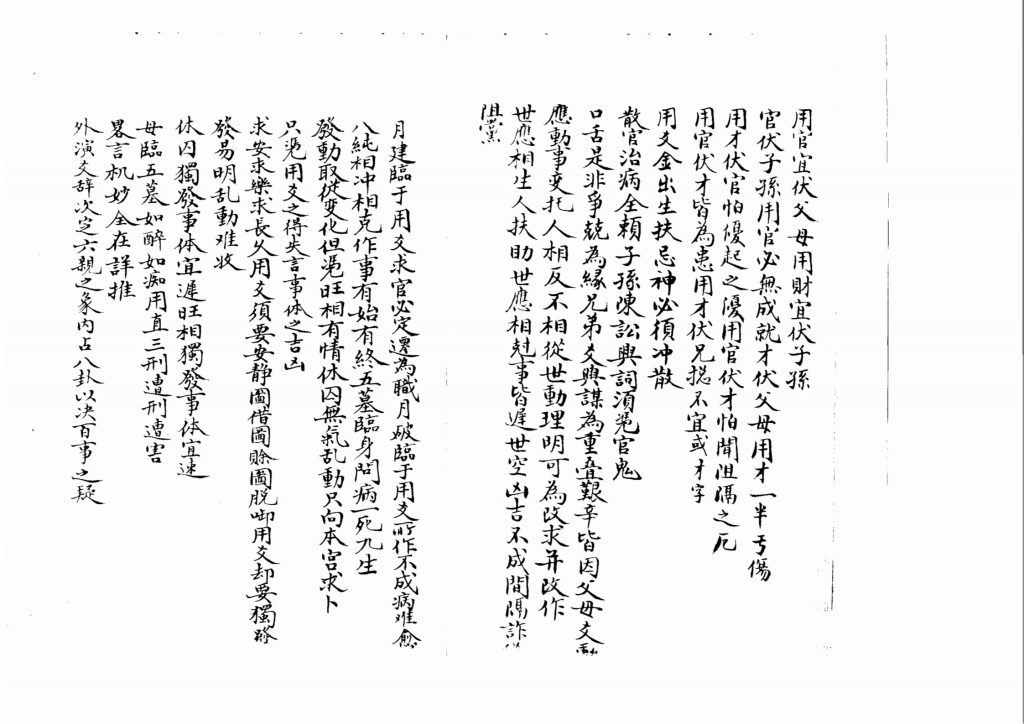 用官宜伏父母用財宜伏子孫
官伏子孫用官必無成就才伏父母用才一半亏傷
用才伏官怕優起之優用官伏才怕聞阻隔之厄
用官伏才皆為患用才伏兄揔不宜或才字
用爻金出生扶忌神必須冲散
散官治病全頼子孫陳訟興詞湏凴官鬼
口舌是非爭競為縁兄弟爻興謀為重叠艱辛皆因父母爻動
應動事变托人相反不相從世動理明可為改求并改作
世應相生人扶助世應相尅事皆遅世空凶吉不成間隔詐
阻黨
月建臨于用爻求官必定遷為職月破臨于用爻所作不成病难愈
八純相冲相克作事有始有終五墓臨身問病一死九生
發動取從变化但凴旺相有情休囚無氣乱動只向本宮求卜
只凴用爻之得失言事体之吉凶
求安求樂求長久用爻須要安静圖借圖賒圖脱啣用爻却要獨發
發易明乱動难收
休囚獨發事体宜遲旺相獨發事体宜速
母臨五墓如醉如痴用直三刑遭刑遭害
畧言机妙全在詳推
外演爻辞次定六親之象内占八卦以决百事之疑